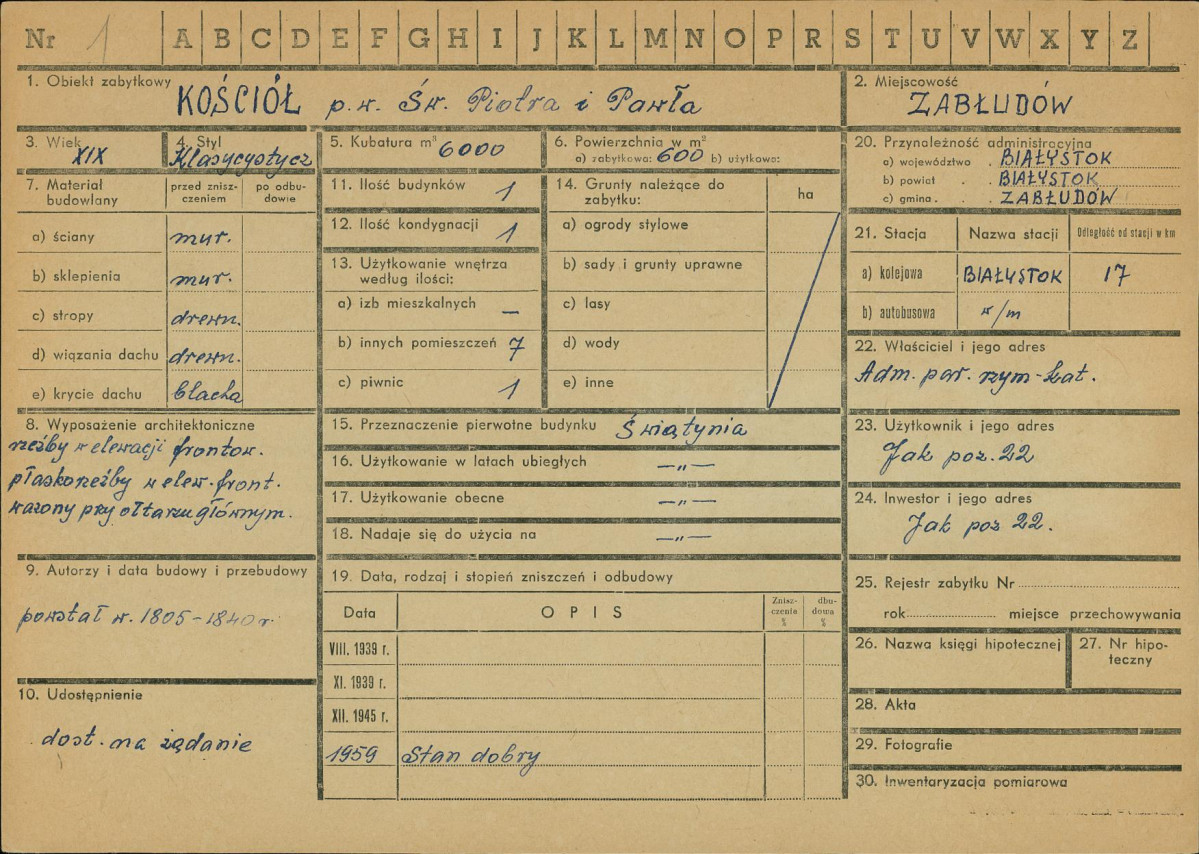 Nr 1 A B C D E F G H I J K L M N O P R S T U V W X Y Z
1. Obiekt zabytkowy KOŚCIÓŁ p.w. Św. Piotra i Pawła
2. Miejscowość
ZABŁUDÓW
3. Wiek
XIX
4. Styl
Klasycystycz
5. Kubatura m³ 6000
6. Powierzchnia w m²
a) zabytkowa: 600 b) użytkowa:
7. Materiał budowlany
przed znisz-
czeniem
po odbu-
dowie
a) ściany mur.
b) sklepienia mur.
c) stropy drewn.
d) wiązania dachu drewn.
e) krycie dachu blacha
8. Wyposażenie architektoniczne
rzeźby w elewacji frontow.
płaskorzeźby w elew. front.
wazony przy ołtarzu głównym.
9. Autorzy i data budowy i przebudowy
powstał w. 1805-1840 r.
10. Udostępnienie
dost. na żądanie
11. Ilość budynków 1
12. Ilość kondygnacji 1
13. Użytkowanie wnętrza
według ilości:
a) izb mieszkalnych –
b) innych pomieszczeń 7
c) piwnic 1
14. Grunty należące do
zabytku:
ha
a) ogrody stylowe
b) sady i grunty uprawne
c) lasy
d) wody
e) inne
15. Przeznaczenie pierwotne budynku Świątynia
16. Użytkowanie w latach ubiegłych —„—
17. Użytkowanie obecne —„—
18. Nadaje się do użycia na —„—
19. Data, rodzaj i stopień zniszczeń i odbudowy
Data OPIS
Znisz-
czenia
%
dbu-
dowa
%
VIII. 1939 r.
XI. 1939 r.
XII. 1945 r.
1959 Stan dobry
20. Przynależność administracyjna
a) województwo . BIAŁYSTOK
b) powiat . . BIAŁYSTOK
c) gmina . . ZABŁUDÓW
21. Stacja Nazwa stacji Odległość od stacji w km
a) kolejowa BIAŁYSTOK 17
b) autobusowa w/m
22. Właściciel i jego adres
Adm. par. rzym-kat.
23. Użytkownik i jego adres
Jak poz. 22
24. Inwestor i jego adres
Jak poz 22.
25. Rejestr zabytku Nr
rok miejsce przechowywania
26. Nazwa księgi hipotecznej
27. Nr hipo-
teczny
28. Akta
29. Fotografie
30. Inwentaryzacja pomiarowa